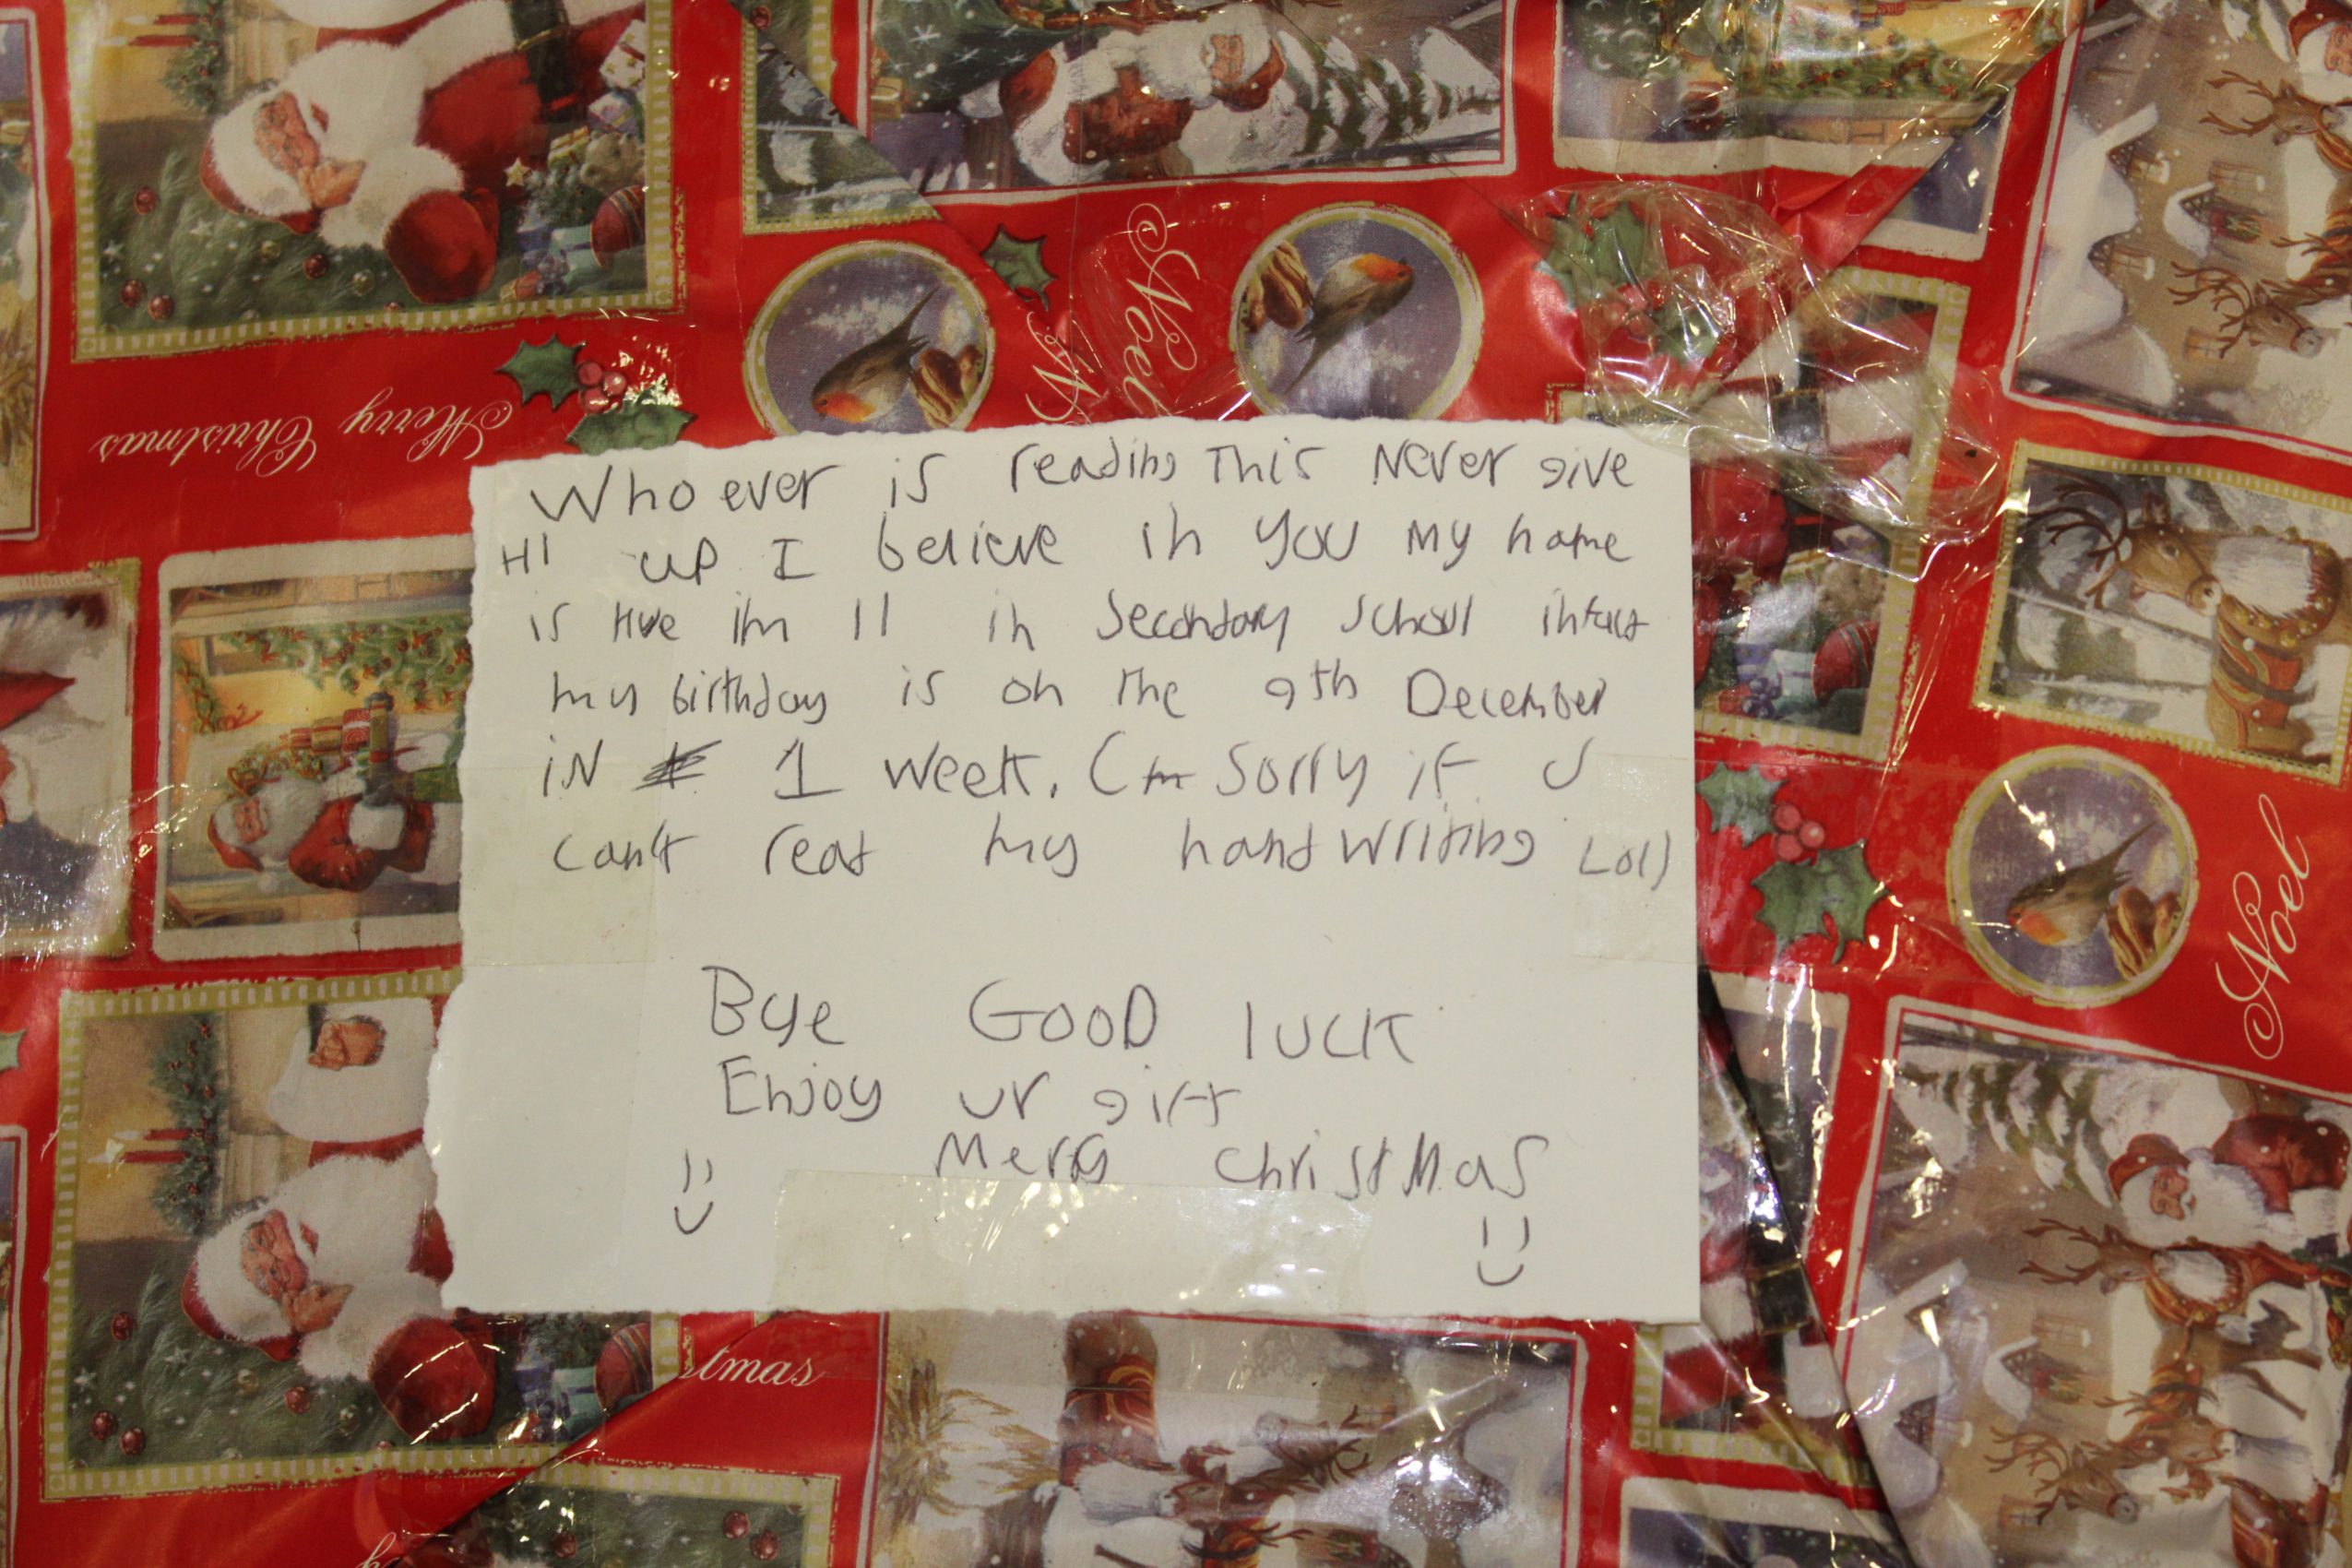 Merry Christmas
Noel
No
Whoever is reading This Never give
Hi up I believe in you my name
is im 11 in Secondary School infact
my birthday is on the 9th December
in 1 week. I'm Sorry if U
can't read my handwriting Lol)
Bye GOOD luck
Enjoy ur gift
Merry ChristMas
Noel
stmas